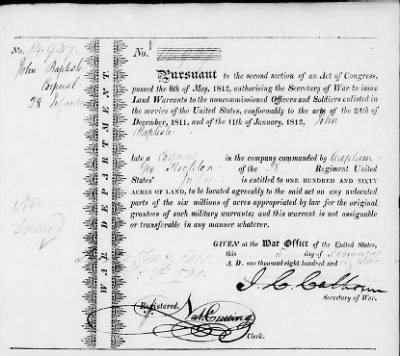 No. 14,937.
John Baptiste
Corporal
28 Infantry
No.
WAR DEPARTMENT.
Pursuant to the second section of an Act of Congress,
passed the 6th of May, 1812, authorising the Secretary of War to issue
Land Warrants to the noncommissioned Officers and Soldiers enlisted in
the service of the United States, conformably to the acts of the 24th of
December, 1811, and of the 11th of January, 1812, John
Baptiste
late a Corporal in the company commanded by Captain
Geo Stockton of the 28 Regiment United
States' Infantry is entitled to ONE HUNDRED AND SIXTY
ACRES OF LAND, to be located agreeably to the said act on any unlocated
parts of the six millions of acres appropriated by law for the original
grantees of such military warrants; and this warrant is not assignable
or transferable in any manner whatever.
GIVEN at the War Office of the United States,
this day of February
A. D. one thousand eight hundred and
J. C. Calhoun
Secretary of War.
Registered.
Nat. Cutting
Clerk.